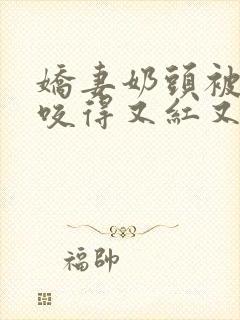 嬌妻奶頭被
咬得又紅又
福帥